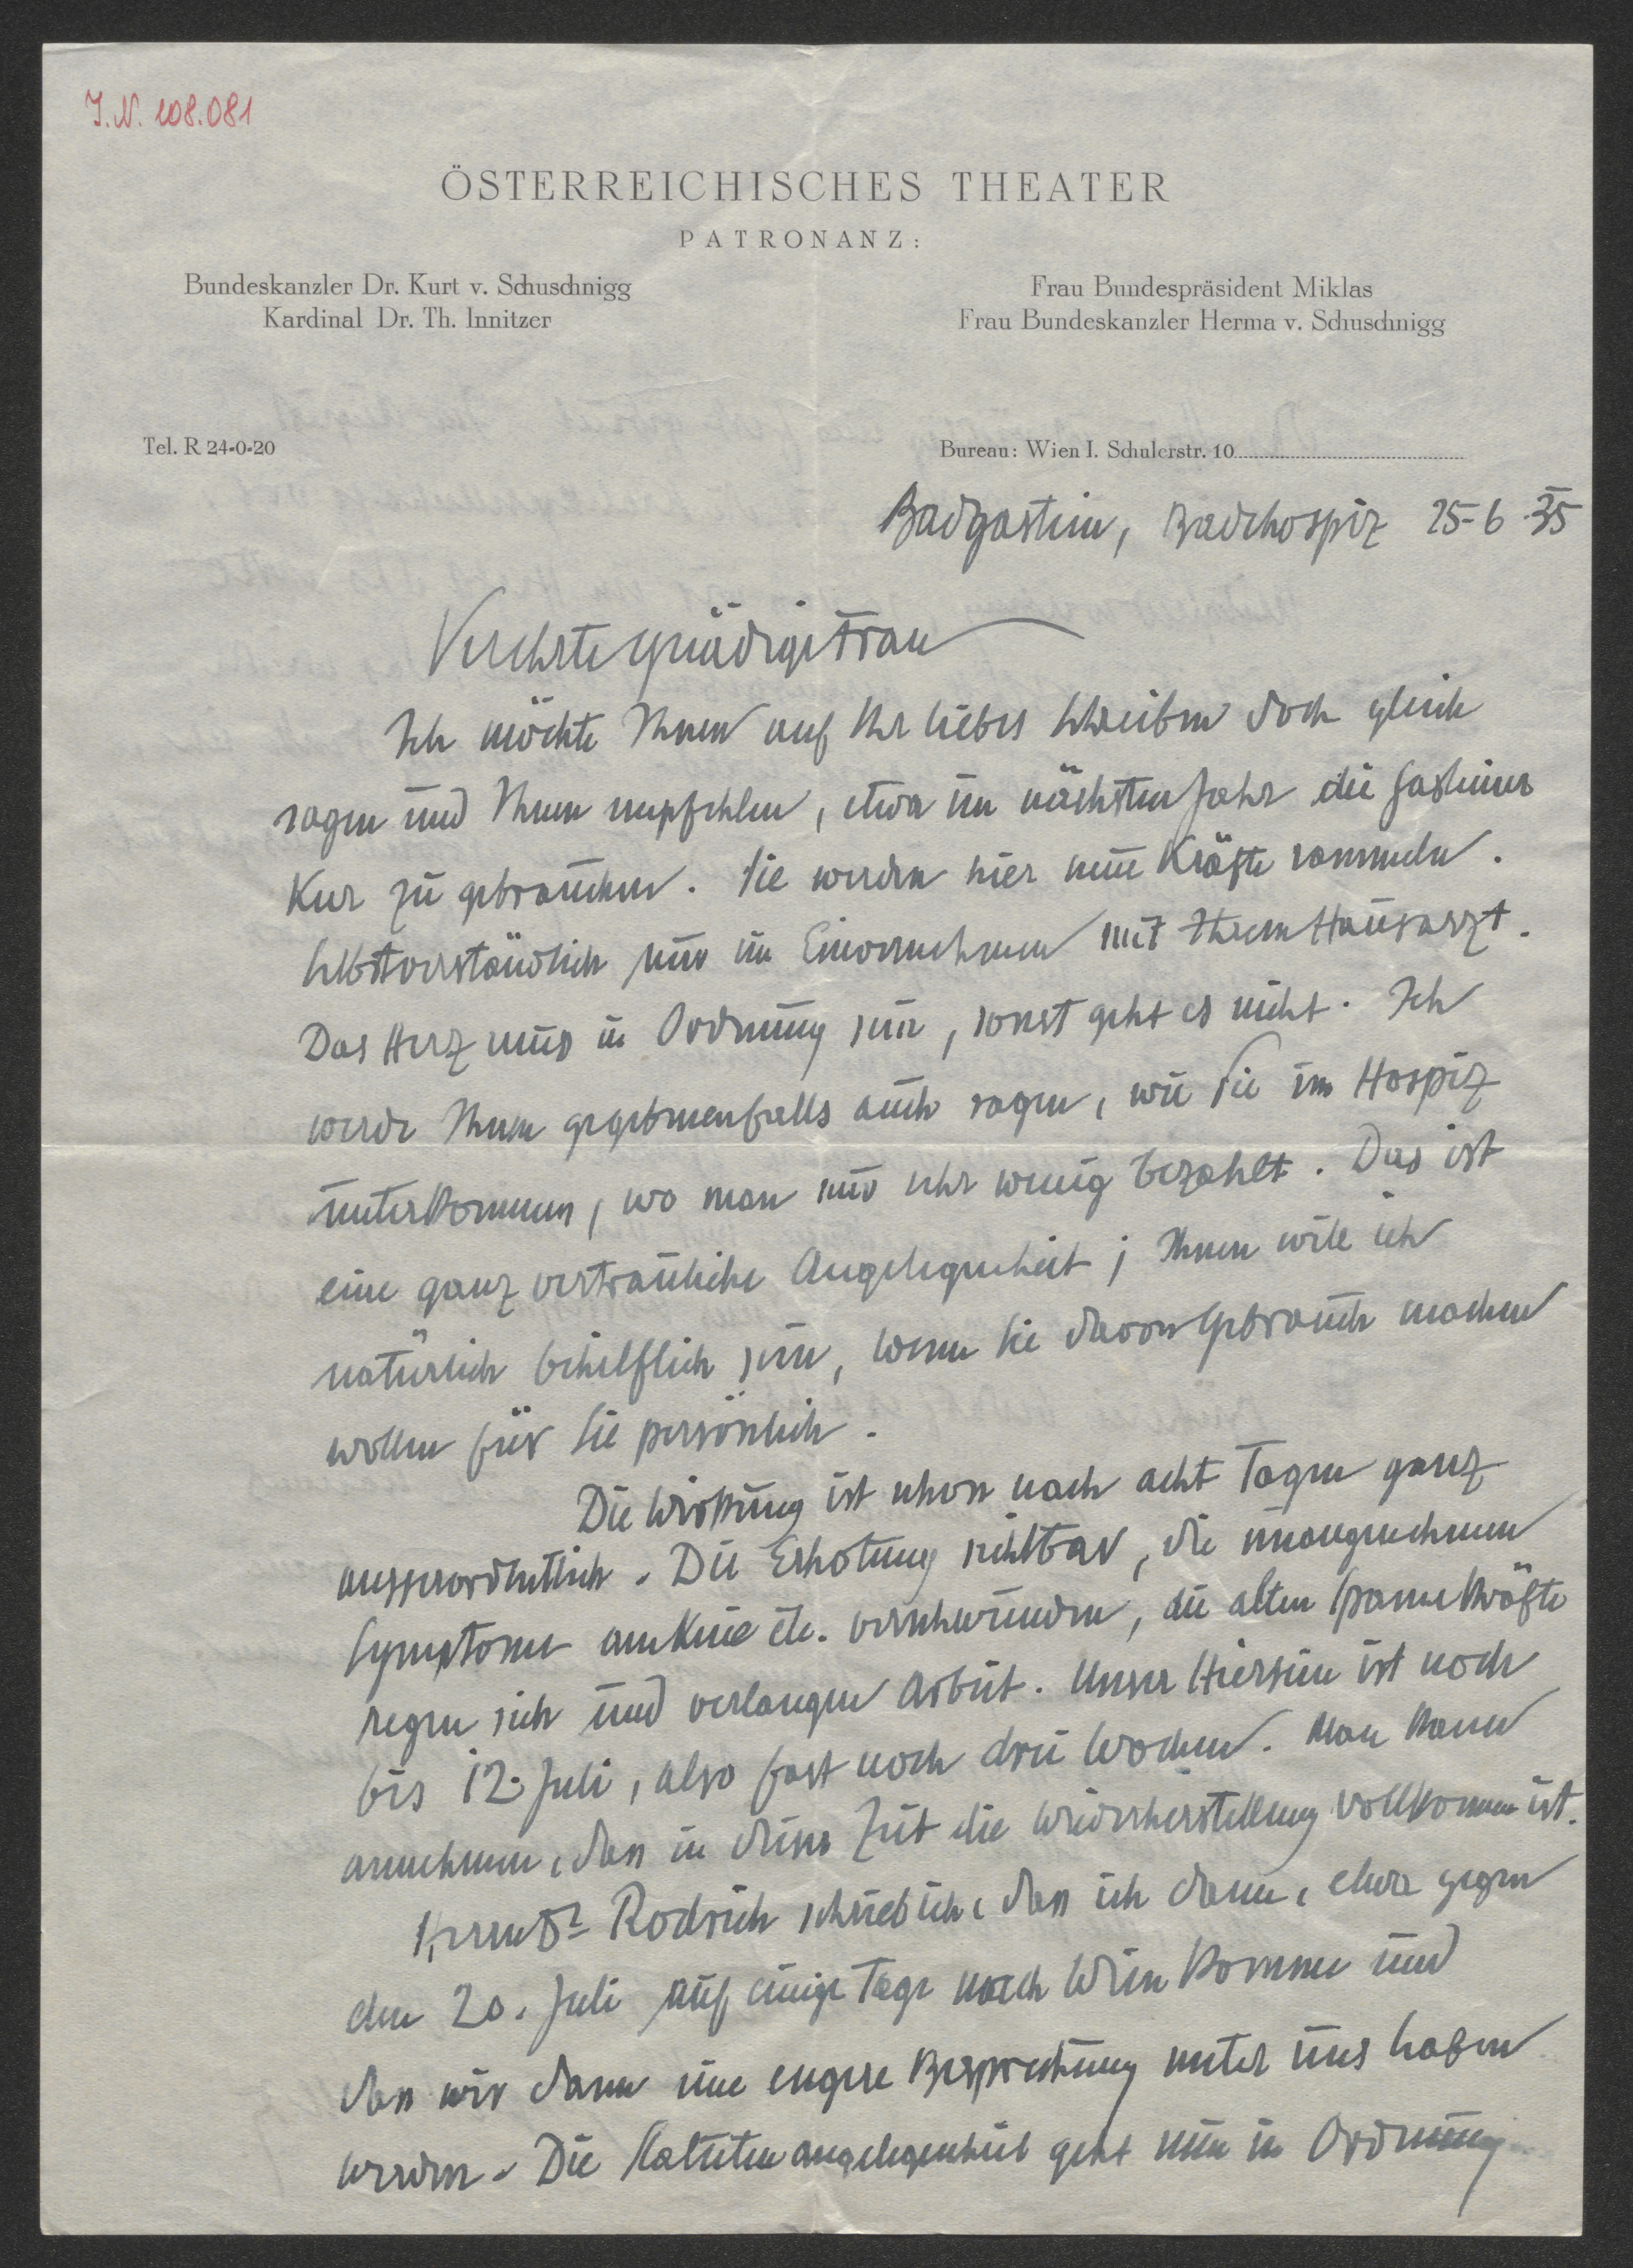 J.N. 108.081
ÖSTERREICHISCHES THEATER
PATRONANZ:
Bundeskanzler Dr. Kurt v. Schuschnigg
Kardinal Dr. Th. Innitzer
Frau Bundespräsident Miklas
Frau Bundeskanzler Herma v. Schuschnigg
Tel. R 24-0-20
Bureau: Wien I. Schulerstr. 10
Badgastein, Badehospiz 25-6-35
Verehrte gnädige Frau
Ich möchte Ihnen auf Ihr liebes Schreiben doch gleich
sagen und Ihnen empfehlen, etwa im nächsten Jahr die Gasteiner
Kur zu gebrauchen. Sie werden hier neue Kräfte sammeln.
Selbstverständlich nur im Einvernehmen mit Ihrem Hausarzt.
Das Herz muss in Ordnung sein, sonst geht es nicht. Ich
werde Ihnen gegebenenfalls auch sagen, wie Sie im Hospiz
unterkommen, wo man nur sehr wenig bezahlt. Das ist
eine ganz vertrauliche Angelegenheit; Ihnen will ich
natürlich behilflich sein, wenn Sie davon Gebrauch machen
wollen für Sie persönlich.
Die Wirkung ist schon nach acht Tagen ganz
ausserordentlich. Die Erholung sichtbar, die unangenehmen
Symptome am Knie etc. verschwinden, die alten Spannkräfte
regen sich und verlangen Arbeit. Unser Hiersein ist noch
bis 12. Juli, also fast noch drei Wochen. Man kann
annehmen, dass in dieser Zeit die Wiederherstellung vollkommen ist.
Herrn Dr Rodrich schrieb ich, dass ich dann, etwa gegen
den 20. Juli auf einige Tage nach Wien komme und
dass wir dann eine engere Besprechung unter uns haben
werden. Die Statutenangelegenheit geht nun in Ordnung